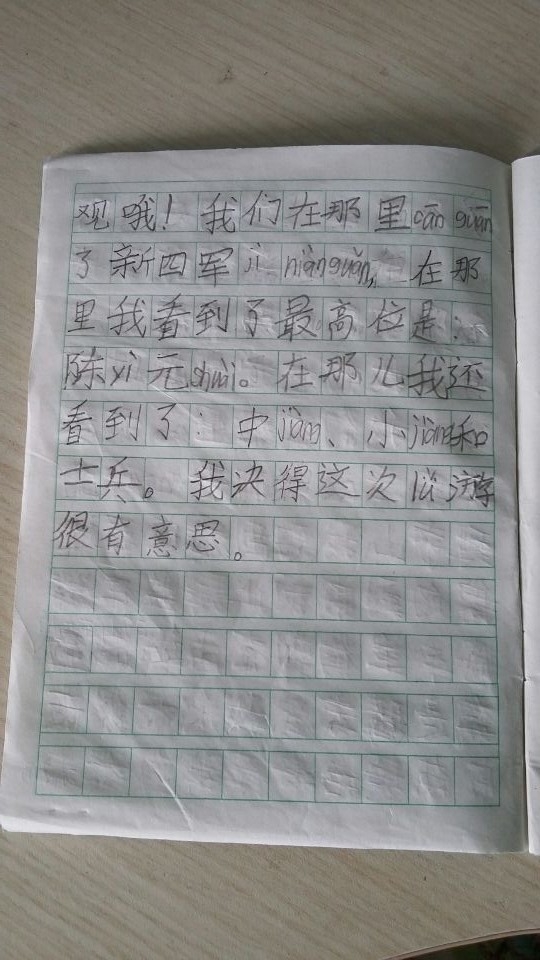 观哦！我们在那里cān guān
了新四军jì niàn guǎn，在那
里我看到了最高位是：
陈yì元shuài。在那儿我还
看到了：中jiàng、小jiàng和
士兵。我决得这次lǚ游
很有意思。